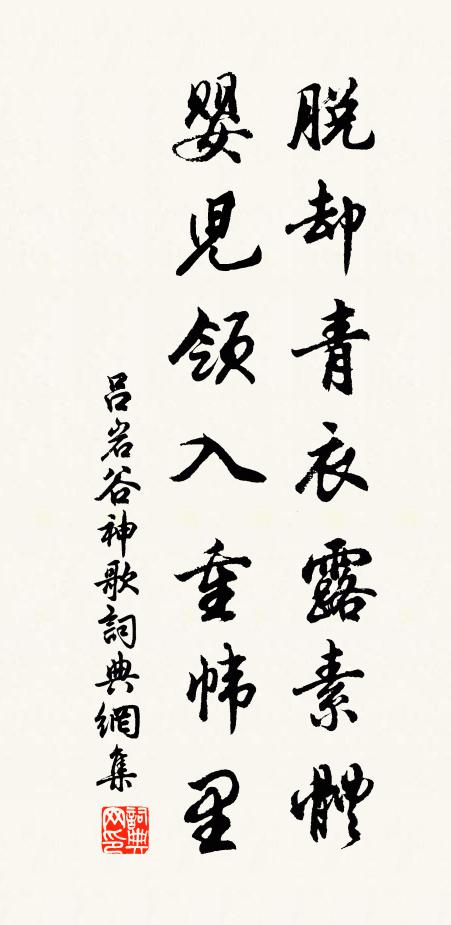 脱却青衣露素體
嬰兒領入重幃里
吕岩谷神歌詞典網集
詞典网印